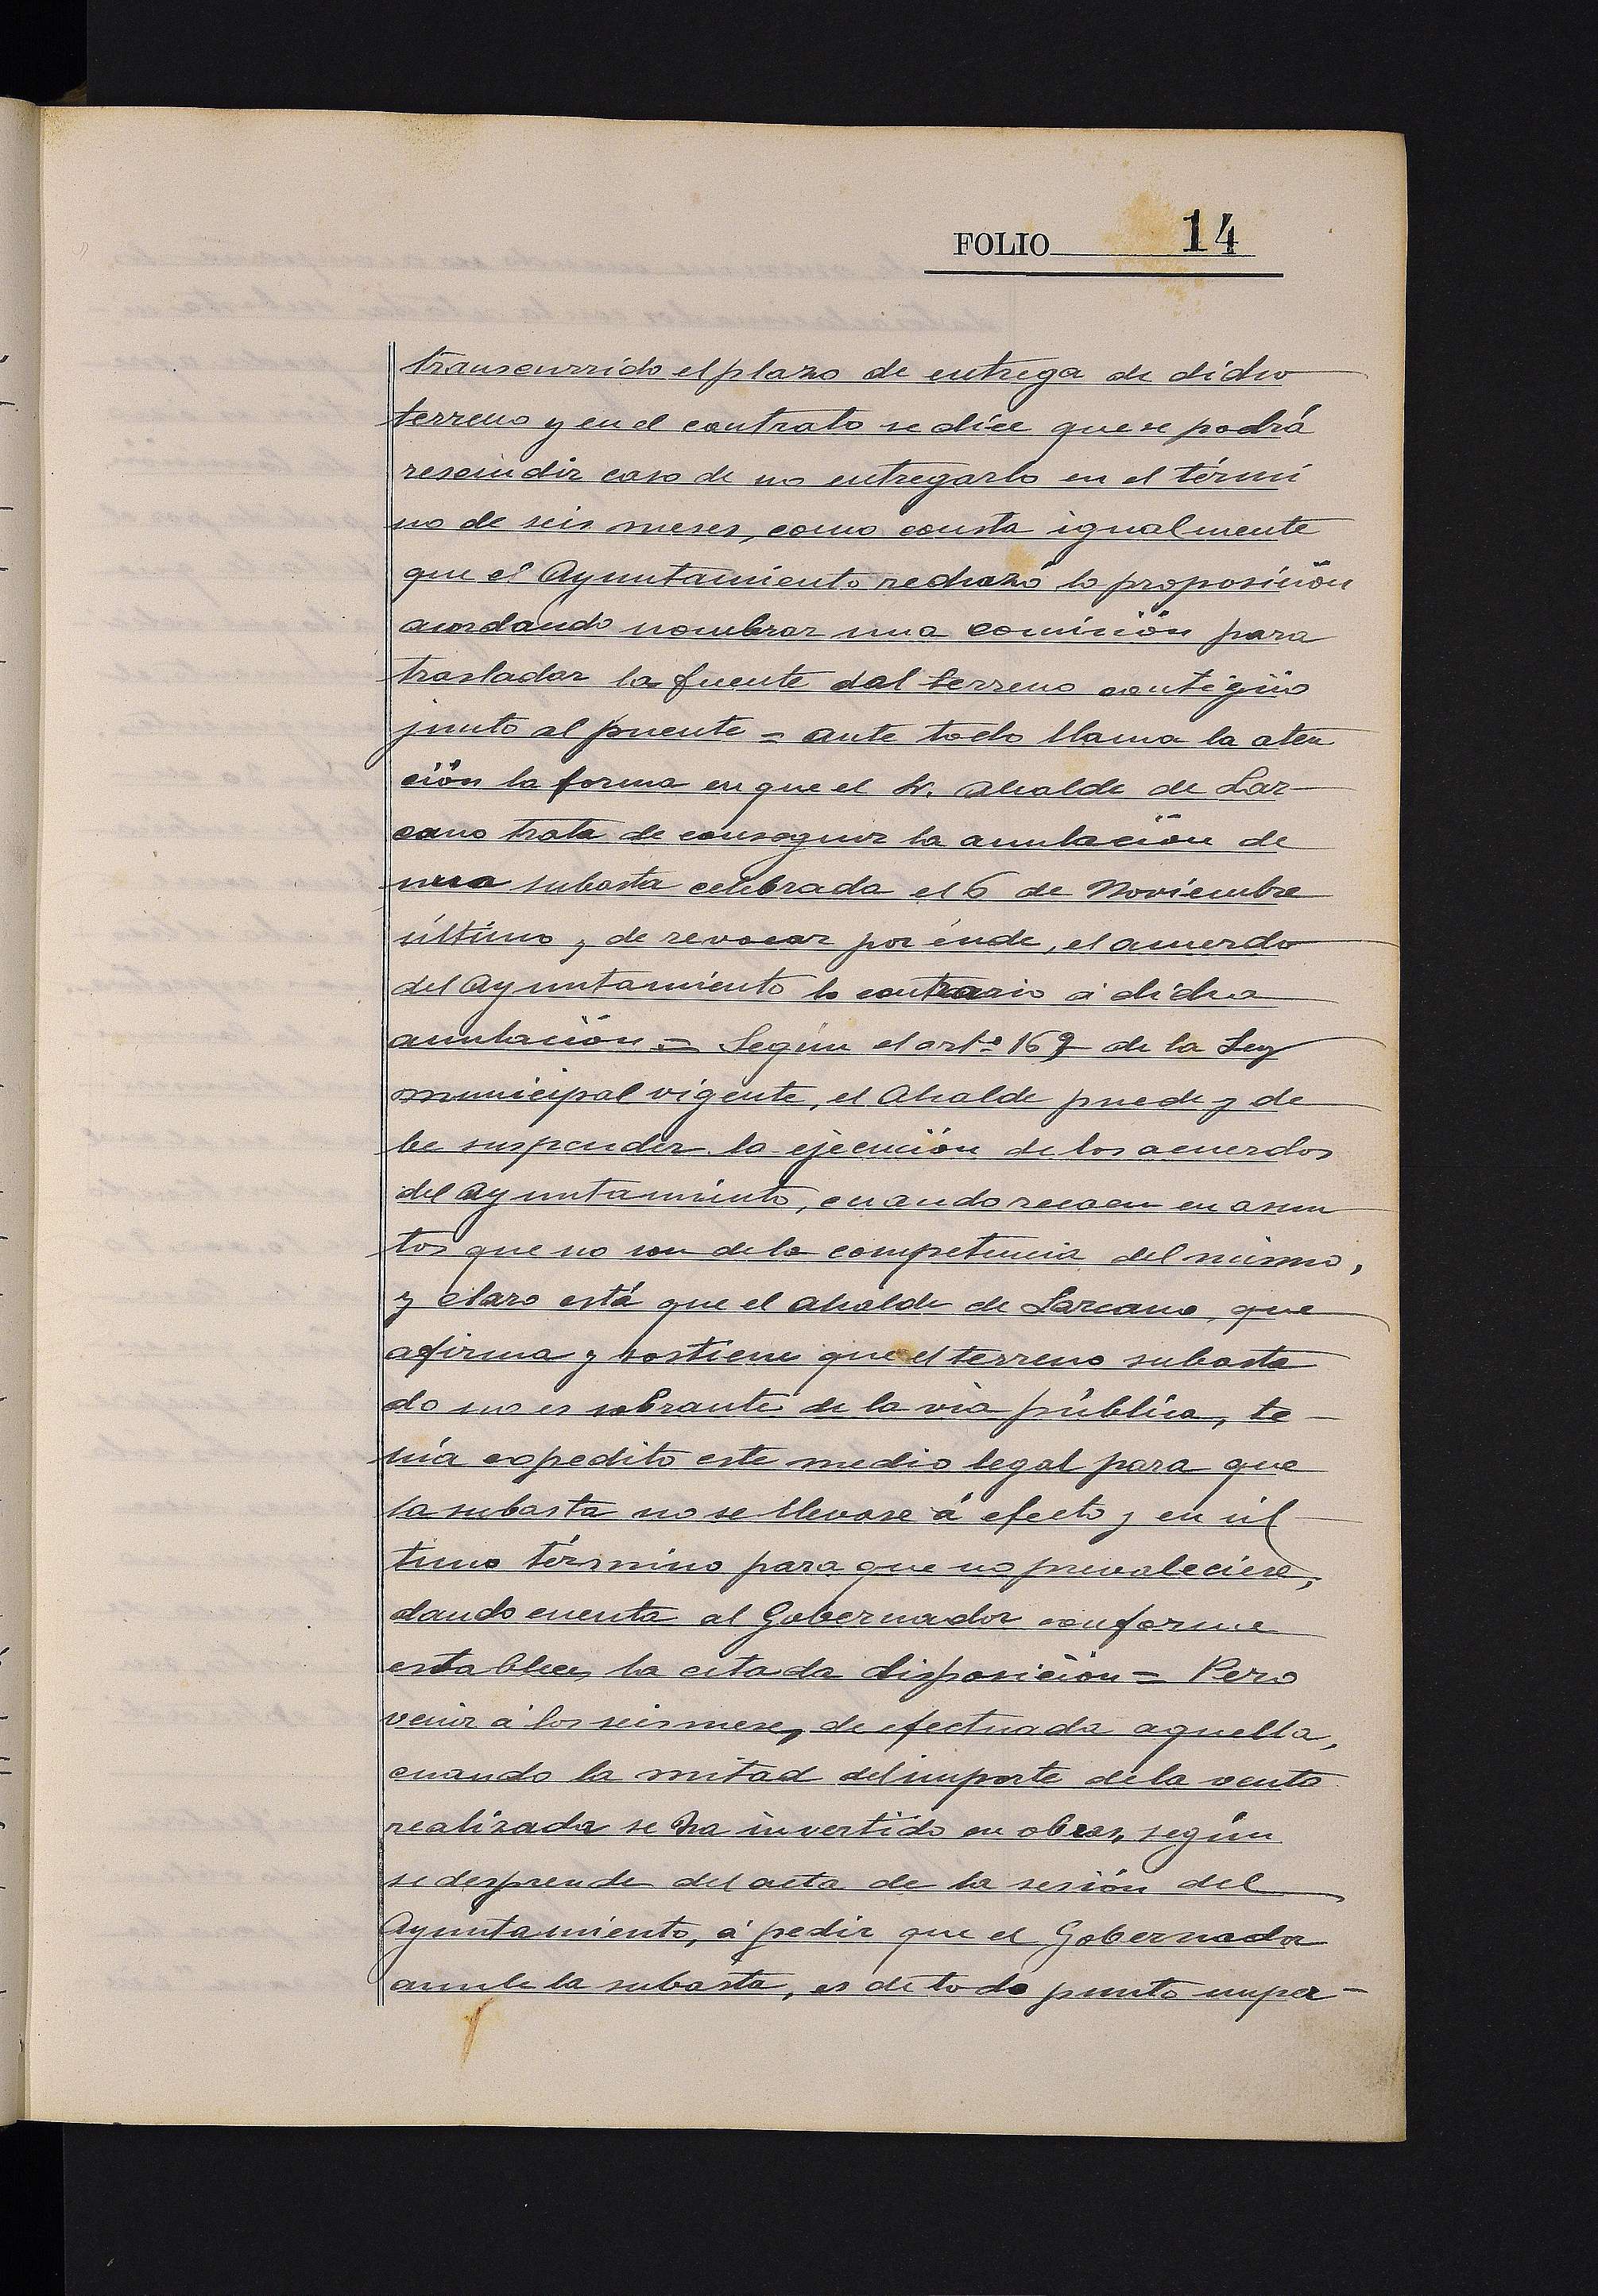 FOLIO 14
transcurrido el plazo de entrega de dicho
terreno y en el contrato se díce que se podrá
rescindir caso de no entregarlo en el térmi
no de seis meses, como consta igualmente
que el Ayuntamiento rechazó la proposición
acordando nombrar una comisión para
trasladar la fuente dal terreno contigüo
junto al puente = ante todo llama la aten
ción la forma en que el Sr. Alcalde de Laz-
cano trata de conseguir la anulación de
una subasta celebrada el 6 de Noviembre
último y de revocar por énde, el acuerdo
del Ayuntamiento lo contrario á dicha
anulación = Según el artº 169 de la Ley
municipal vigente, el Alcalde puede y de
be suspender la ejecución de los acuerdos
del Ayuntamiento, cuando recaen en asun
tos que no son de la competencia del mismo,
y claro está que el Alcalde de Lazcano, que
afirma y sostiene que el terreno subasta
do no es sobrante de la vía pública, te-
nía expedito este medio legal para que
la subasta no se llevase á efecto y en úl
timo término para que no prevaleciese,
dando cuenta al Gobernador conforme
establece la citada disposición = Pero
venir á los seis meses, de efectuada aquella,
cuando la mitad del importe de la venta
realizada se ha invertido en obras, según
se desprende del acta de la sesión del
Ayuntamiento, á pedir que el Gobernador
anule la subasta, es de todo punto imper-